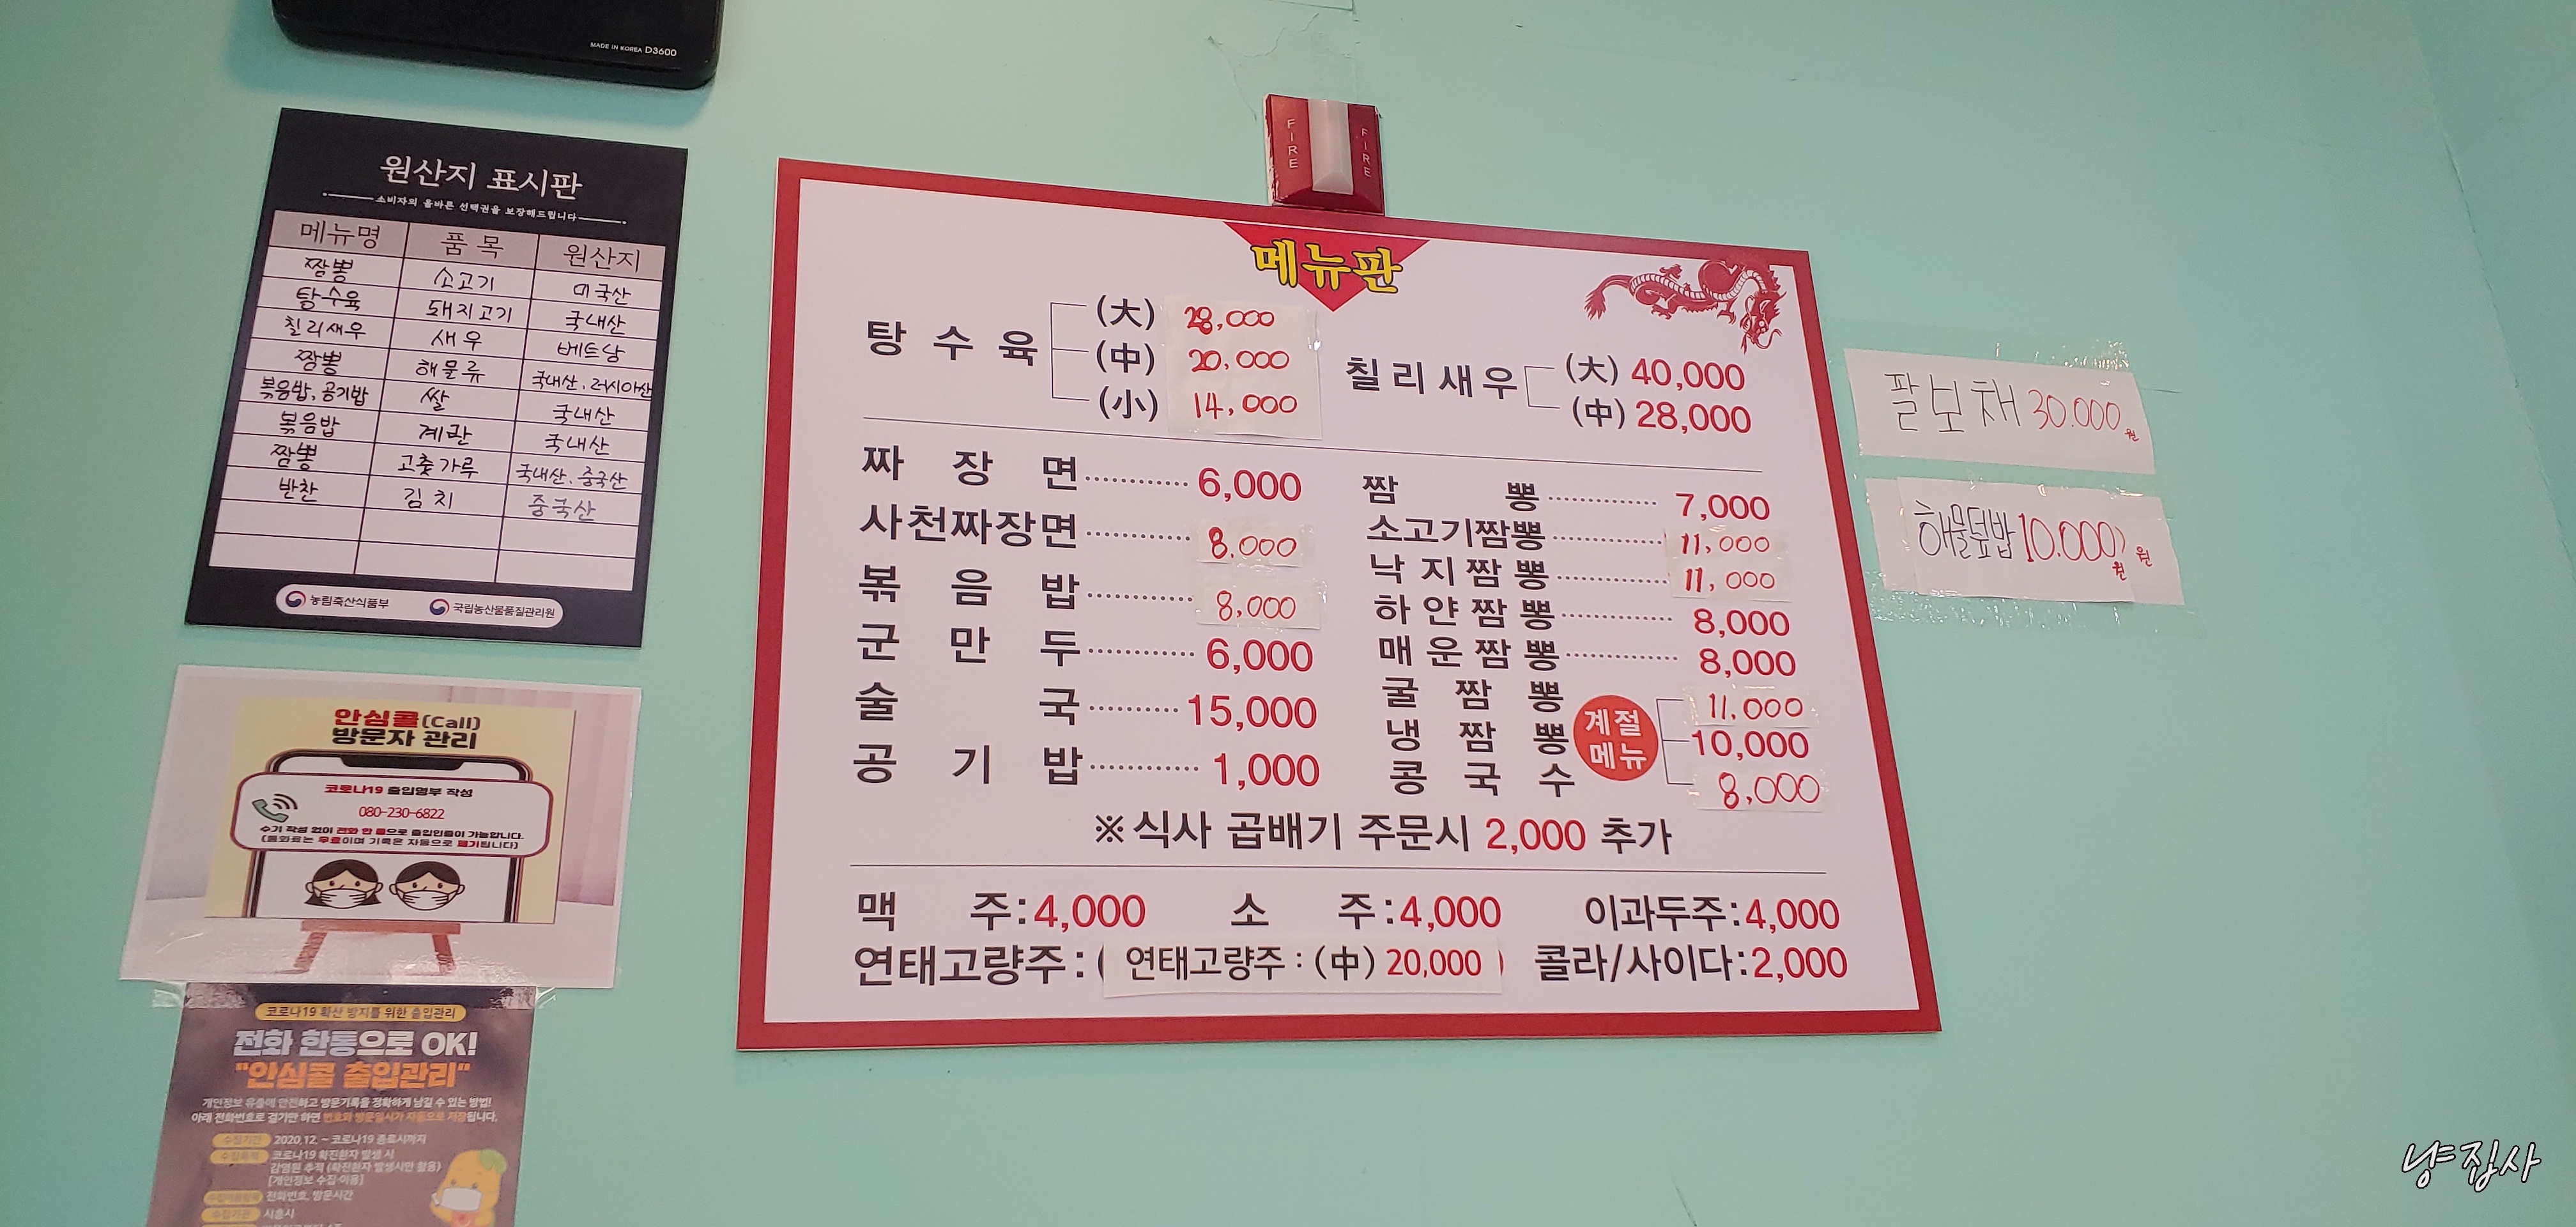 MADE IN KOREA D3600
원산지 표시판
소비자의 올바른 선택권을 보장해드립니다
메뉴명 품목 원산지
짬뽕 소고기 미국산
탕수육 돼지고기 국내산
칠리새우 새우 베트남
짬뽕 해물류 국내산, 러시아산
볶음밥, 공기밥 쌀 국내산
볶음밥 계란 국내산
짬뽕 고춧가루 국내산, 중국산
반찬 김치 중국산
농림축산식품부 국립농산물품질관리원
안심콜(Call)
방문자 관리
코로나19 출입명부 작성
080-230-6822
수기 작성 없이 전화 한 통으로 출입인증이 가능합니다.
(통화료는 무료이며 기록은 자동으로 폐기됩니다)
코로나19 확산 방지를 위한 출입관리
전화 한통으로 OK!
"안심콜 출입관리"
개인정보 유출에 안전하고 방문기록을 정확하게 남길 수 있는 방법!
아래 전화번호로 걸기만 하면 번호와 방문일시가 자동으로 저장됩니다.
수집기간 2020.12. ~ 코로나19 종료시까지
수집목적 코로나19 확진환자 발생 시
감염원 추적 (확진환자 발생시만 활용)
[개인정보 수집·이용]
전화번호, 방문시간
수집기관 시흥시
FIRE FIRE
메뉴판
탕수육 (大) 28,000
(中) 20,000
(小) 14,000
칠리새우 (大) 40,000
(中) 28,000
짜장면 6,000
사천짜장면 8,000
볶음밥 8,000
군만두 6,000
술국 15,000
공기밥 1,000
짬뽕 7,000
소고기짬뽕 11,000
낙지짬뽕 11,000
하얀짬뽕 8,000
매운짬뽕 8,000
계절
메뉴
굴짬뽕 11,000
냉짬뽕 10,000
콩국수 8,000
※식사 곱배기 주문시 2,000 추가
맥주:4,000 소주:4,000 이과두주:4,000
연태고량주:( 연태고량주:(中) 20,000 ) 콜라/사이다:2,000
팔보채 30.000원
해물덮밥 10.000원 원
냥집사